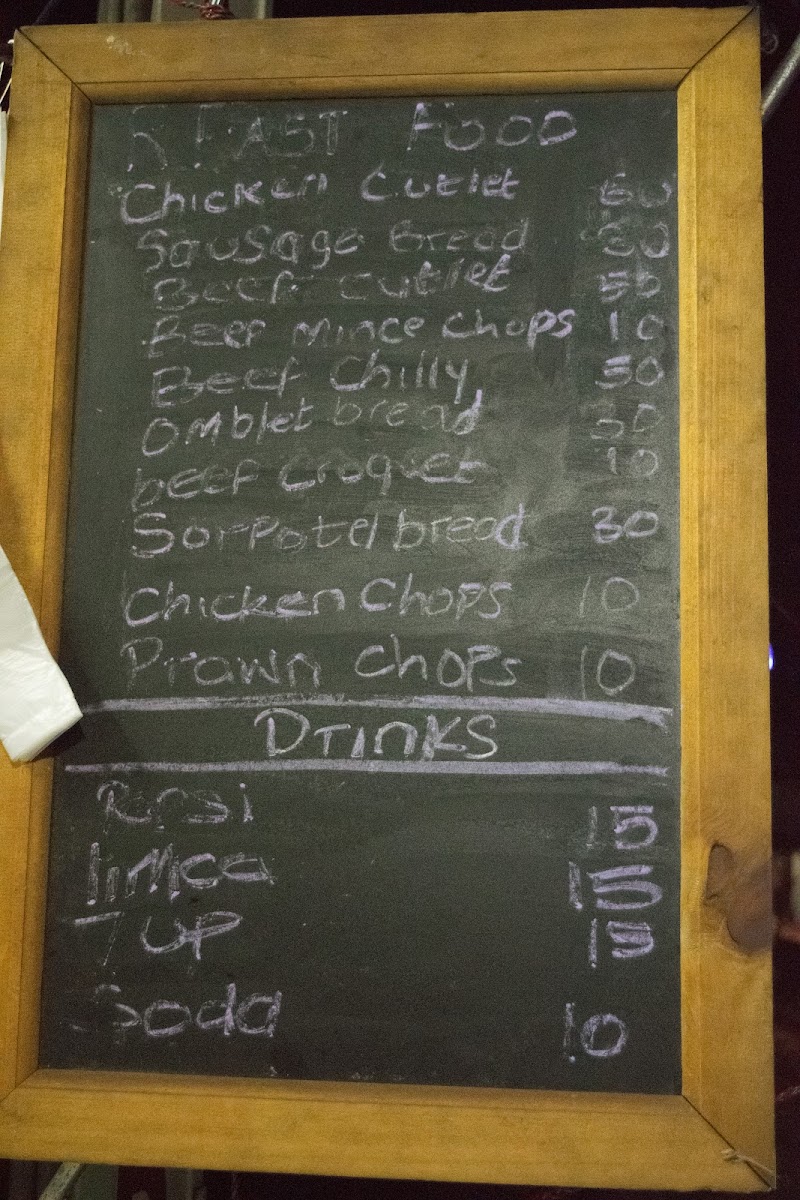 R FAST FOOD
Chicken Cutlet 60
Sausage Bread 30
Beef cutlet 50
Beef mince chops 10
Beef Chilly 50
Omblet bread 30
beef croquet 10
Sorpotel bread 30
Chicken Chops 10
Prawn Chops 10
Drinks
Pepsi 15
limca 15
7 UP 15
Soda 10